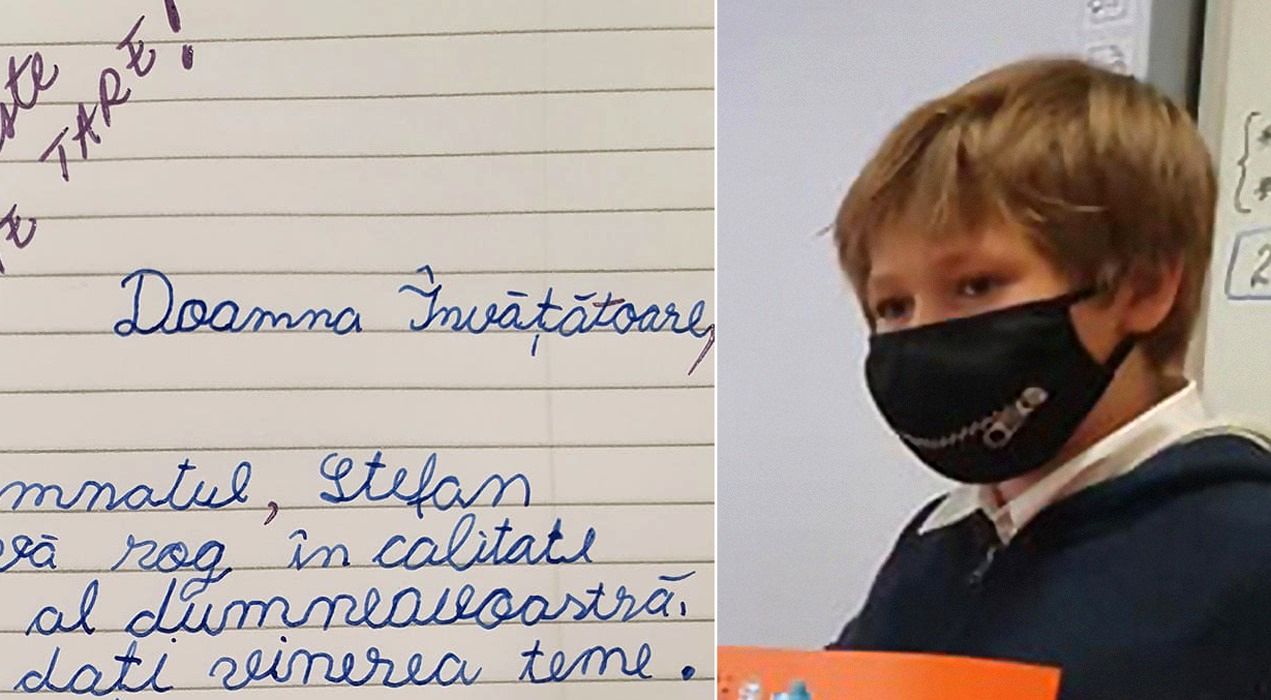 TARE!
Doamna Învățătoare,
mnatul, Ștefan
vă rog în calitate
al dumneavoastră.
dați vinerea teme.
2